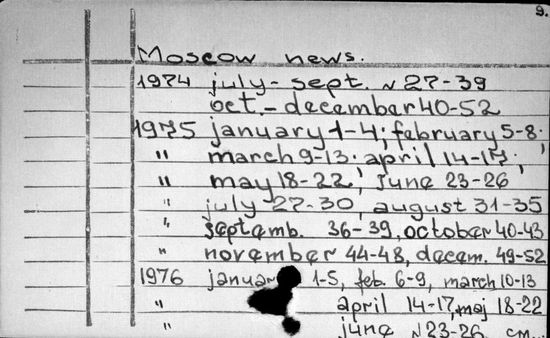 9.
Moscow news.
1974 july - sept. N 27-39
oct. - decembar 40-52
1975 january 1-4; february 5-8;
" march 9-13; april 14-17;
" may 18-22; june 23-26
" july 27-30, august 31-35
" septemb. 36-39, october 40-43
" november 44-48, decem. 49-52
1976 1-5, feb. 6-9, march 10-13
" april 14-17, maj 18-22
" june N 23-26 см...